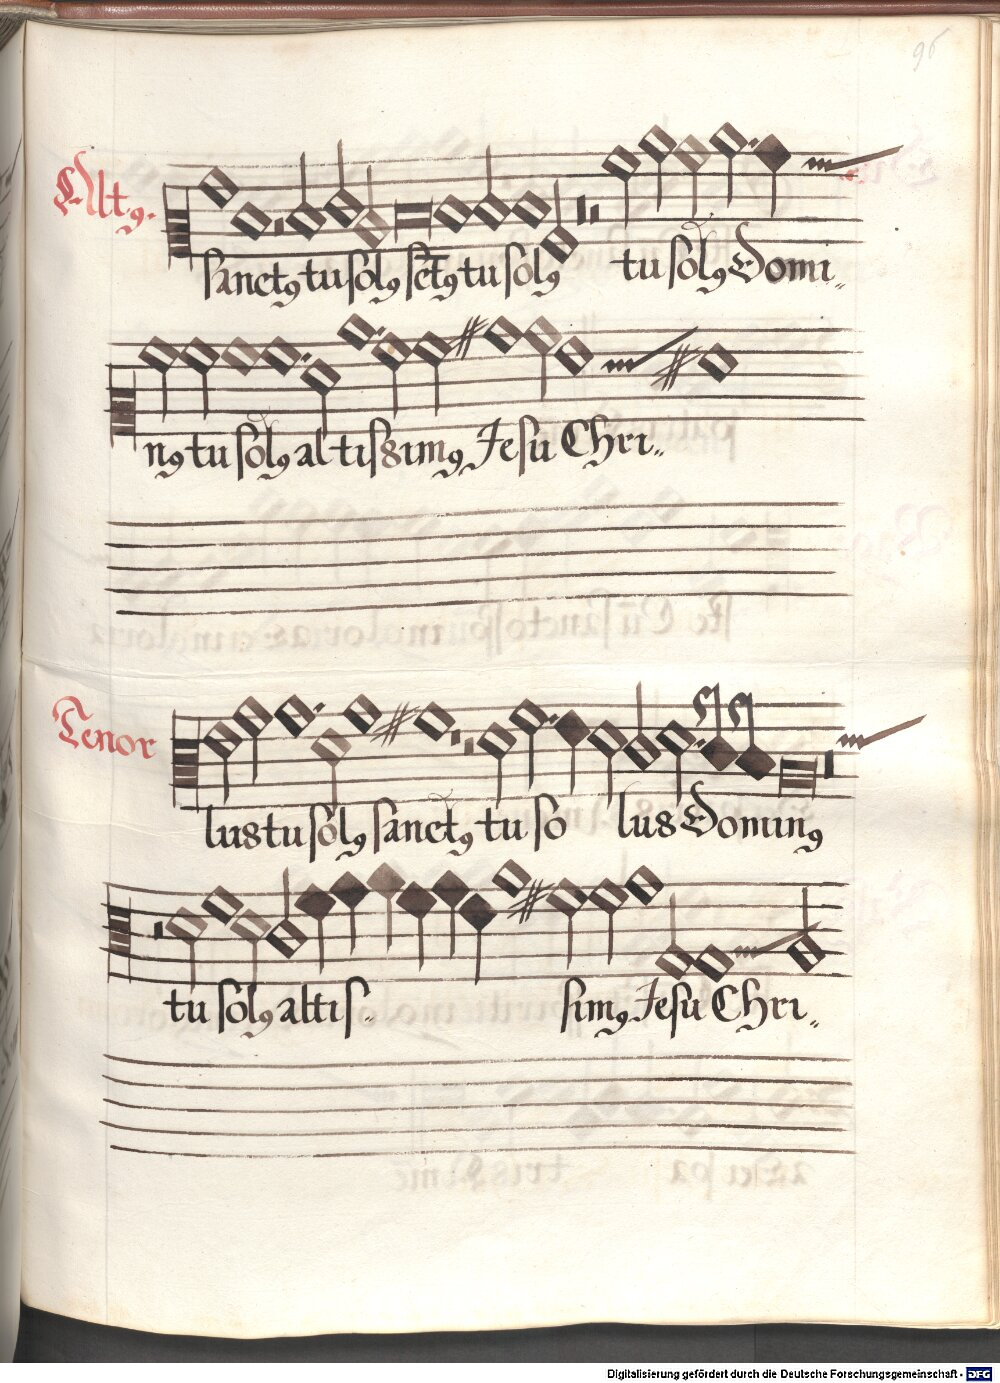 96
Altꝰ.
sanctꝰ tu solꝰ sctꝰ tu solꝰ tu solꝰ Domi„
nꝰ tu solꝰ altissimꝰ Jesu Chri„
Tenor
lus tu solꝰ sanctꝰ tu so lus Dominꝰ
tu solꝰ altis. simꝰ Jesu Chri„
Digitalisierung gefördert durch die Deutsche Forschungsgemeinschaft - DFG